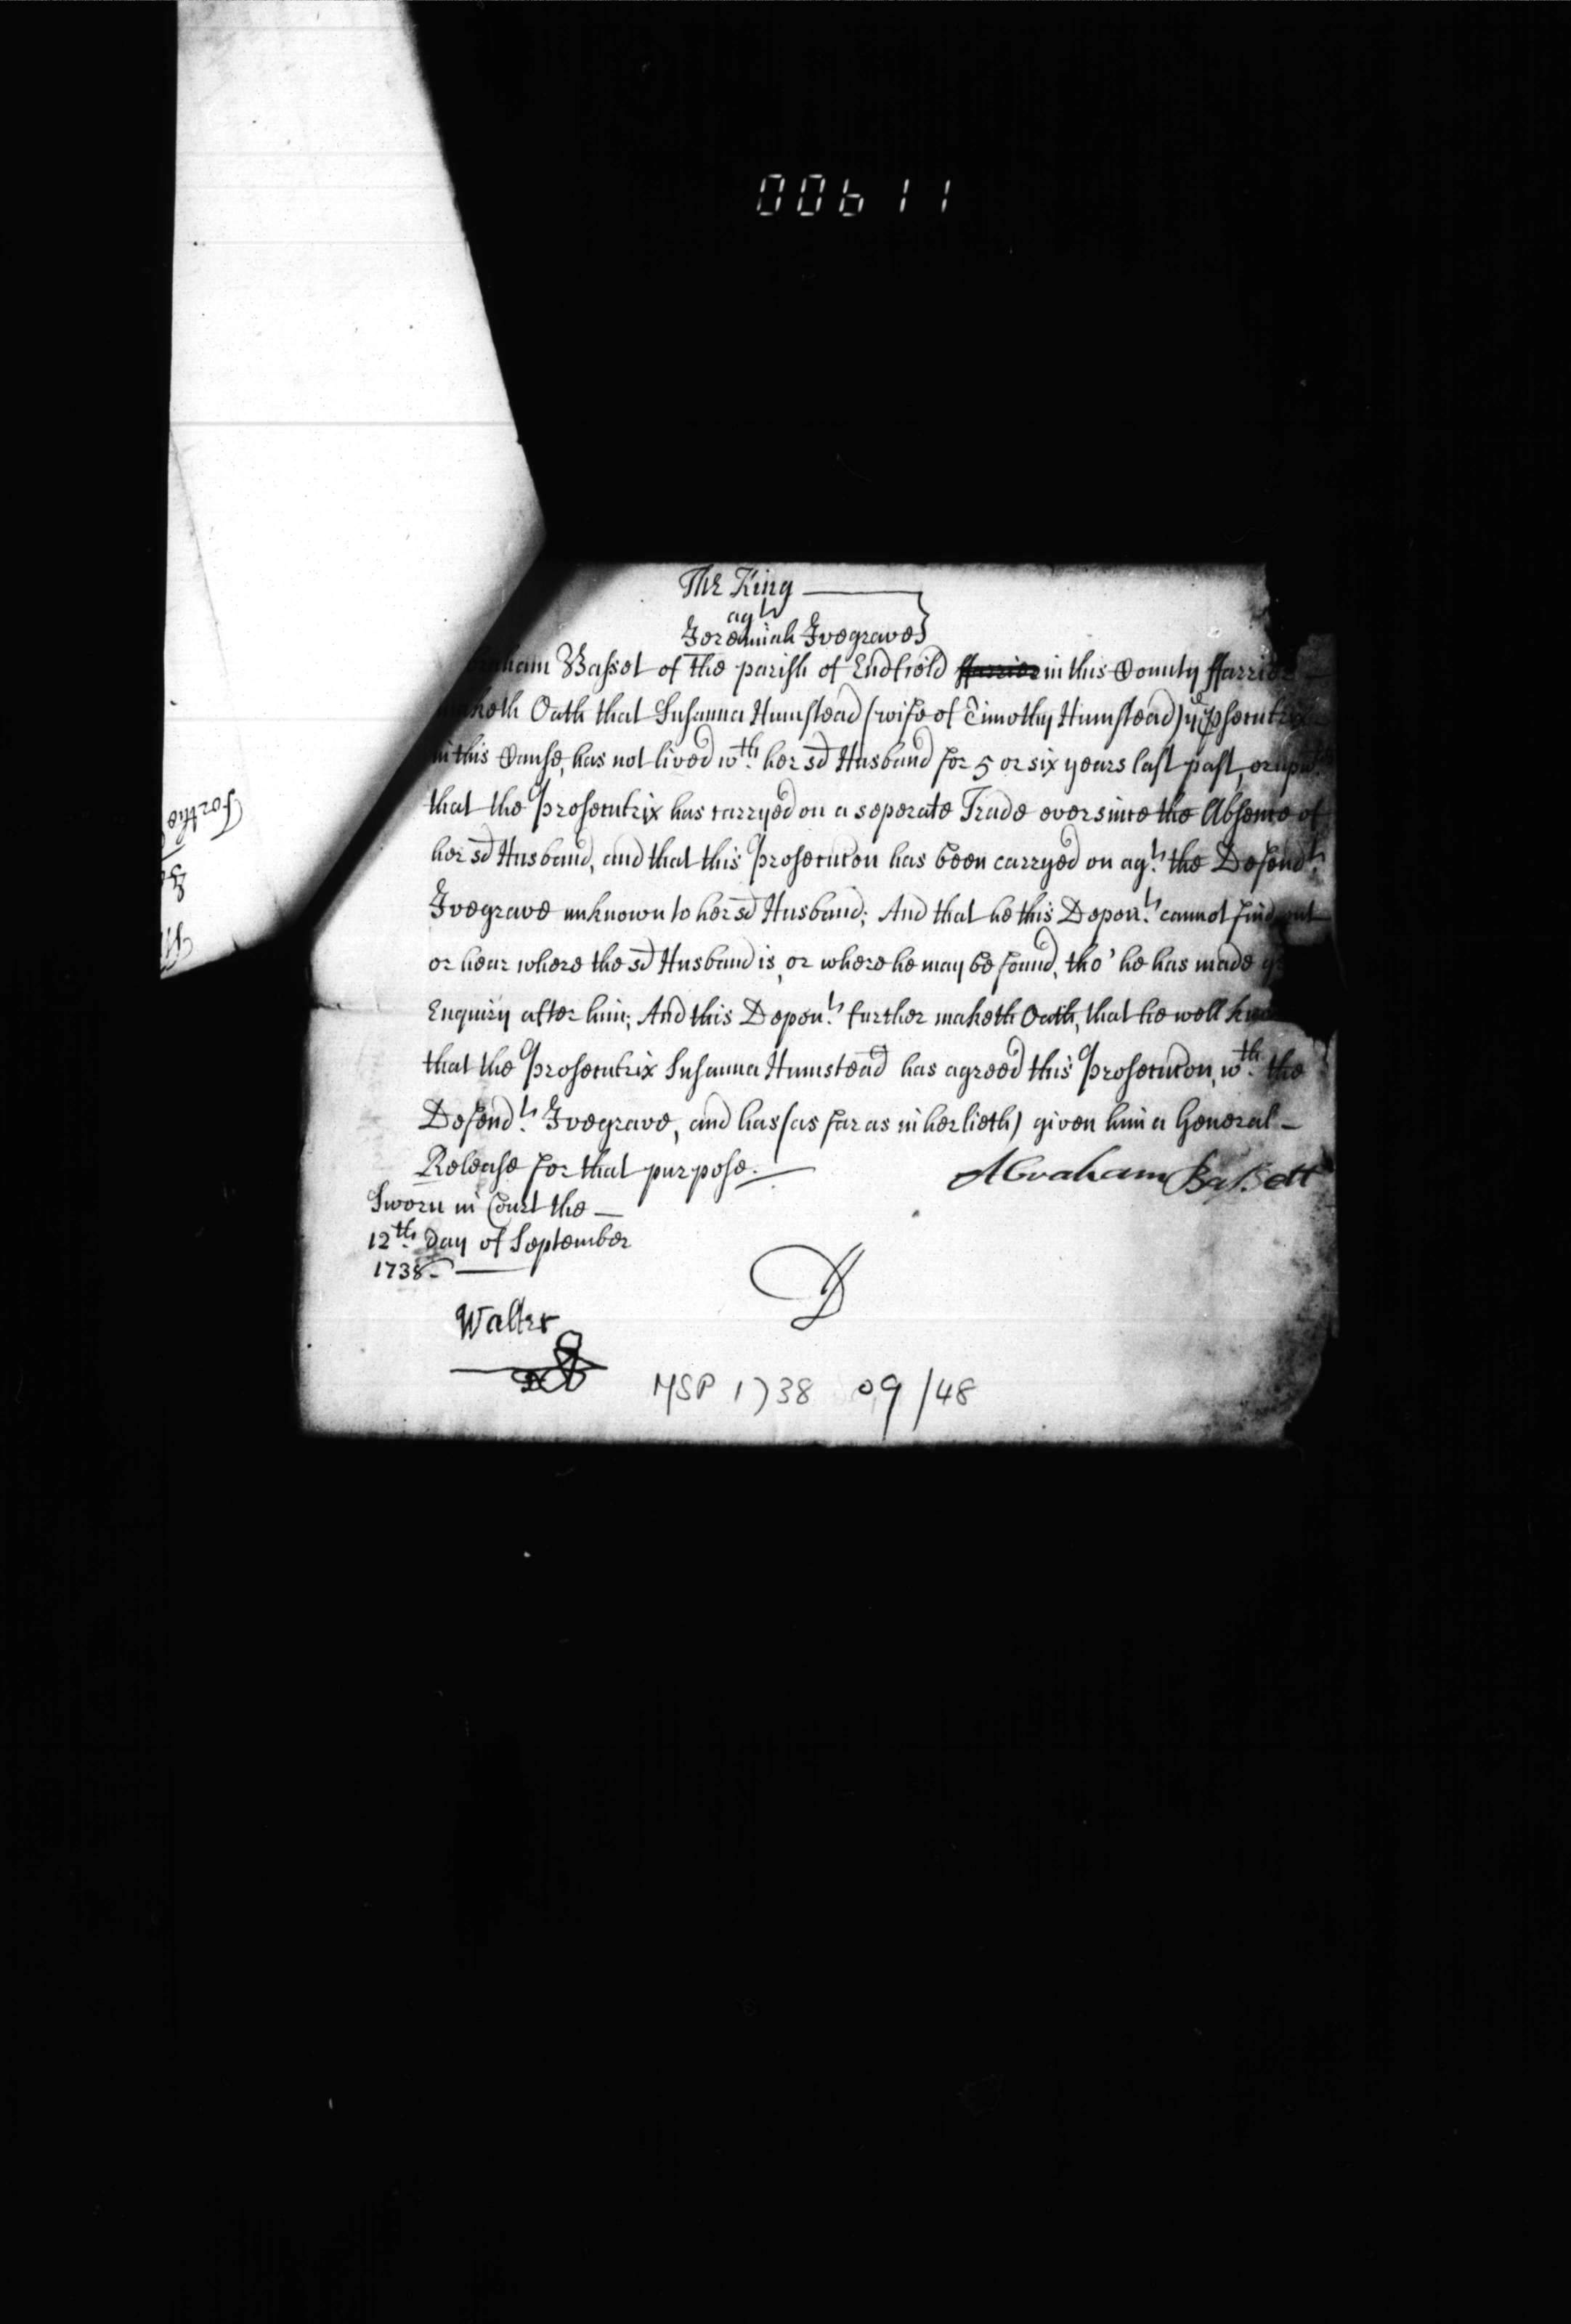 00611
The King
agt
Jeremiah Ivegrave
Abraham Bassel of the parish of Endfield Farrier in this County Farrier
maketh Oath that Susanna Humstead (wife of Timothy Humstead) ye Psecutrix
in this Cause, has not lived wth. her sd Husband for 5 or six years last past, or upwds.
that the Prosecutrix has carryed on a seperate Trade ever since the Absence of
her sd Husband, and that this Prosecucon has been carryed on agt. the Defendt.
Ivegrave unknown to her sd Husband; And that he this Depont. cannot find out
or hear where the sd Husband is, or where he may be found, tho' he has made
Enquiry after him; And this Depont. further maketh Oath, that he well
that the Prosecutrix Susanna Humstead has agreed this Prosecucon, wth. the
Defendt. Ivegrave, and has (as far as in her lieth) given him a General
Release for that purpose.
Abraham Bassett
Sworn in Court the
12th. Day of September
1738
Walter
MSP 1738 09/48
For the